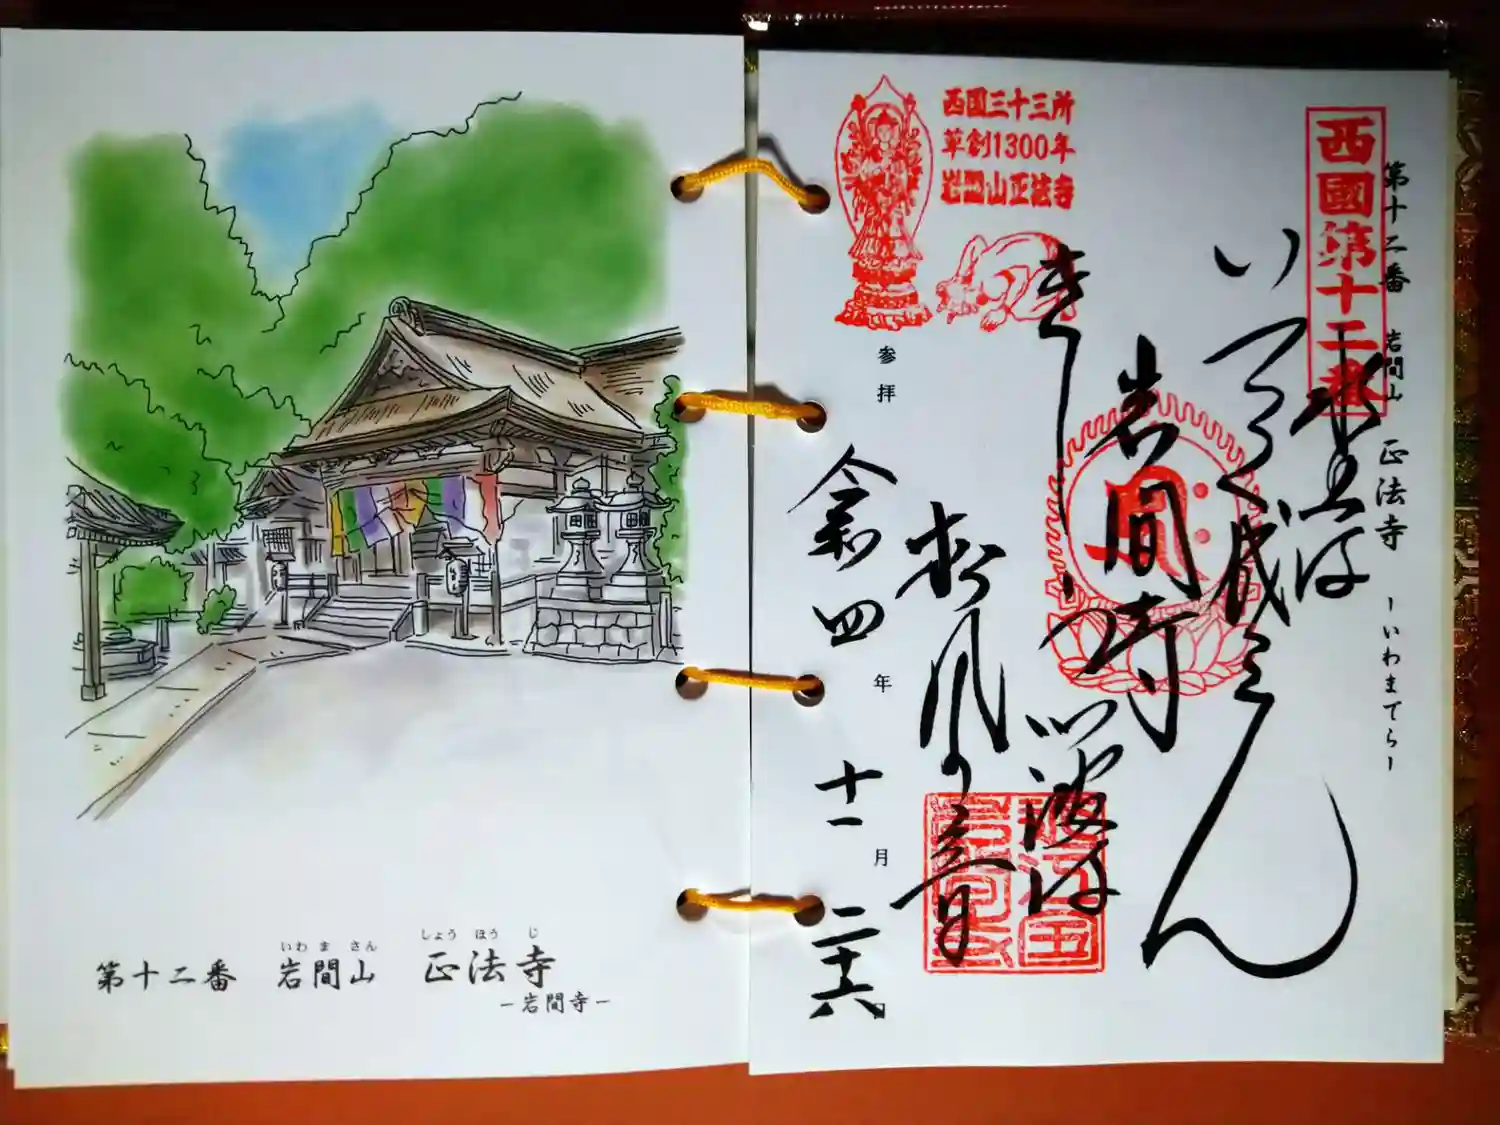 いわ ま さん しょう ほう じ
第十二番 岩間山 正法寺
－岩間寺－
西国三十三所
草創1300年
岩間山正法寺
第十二番 岩間山 正法寺 －いわまでら－
西國第十二番
水上は
岩間寺
波は
松風の音
参拝 令和四年十一月二十六日